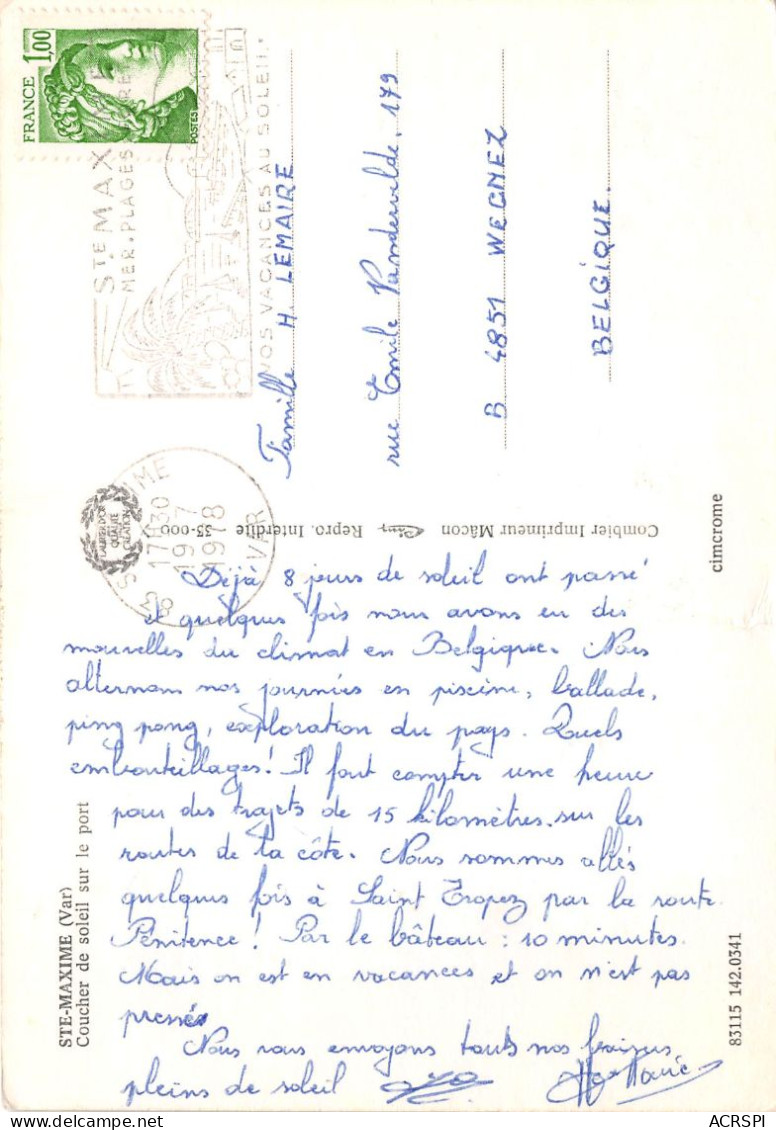 FRANCE 1,00
POSTES
STE MAX
MER. PLAGES
VOS VACANCES AU SOLEIL
IME
17H30
19-7
1978
VAR
83
Famille H. LEMAIRE
rue Emile Vandervelde, 179
B 4851 WEGNEZ
BELGIQUE.
Combier Imprimeur Mâcon Cim Repro. Interdite - 35-000
cimcrome
Déjà 8 jours de soleil ont passé
et quelques fois nous avons eu des
nouvelles du climat en Belgique. Nous
alternons nos journées en piscine, ballade,
ping pong, exploration du pays. Quels
embouteillages! Il faut compter une heure
pour des trajets de 15 kilomètres sur les
routes de la côte. Nous sommes allés
quelques fois à Saint Tropez par la route.
Pénitence! Par le bâteau : 10 minutes.
Mais on est en vacances et on n'est pas
pressés
Nous vous envoyons touts nos baisers
pleins de soleil
STE-MAXIME (Var)
Coucher de soleil sur le port
83115 142.0341
ACRSPI